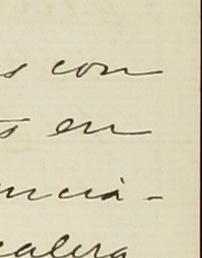 s con
s en
encia-
calera